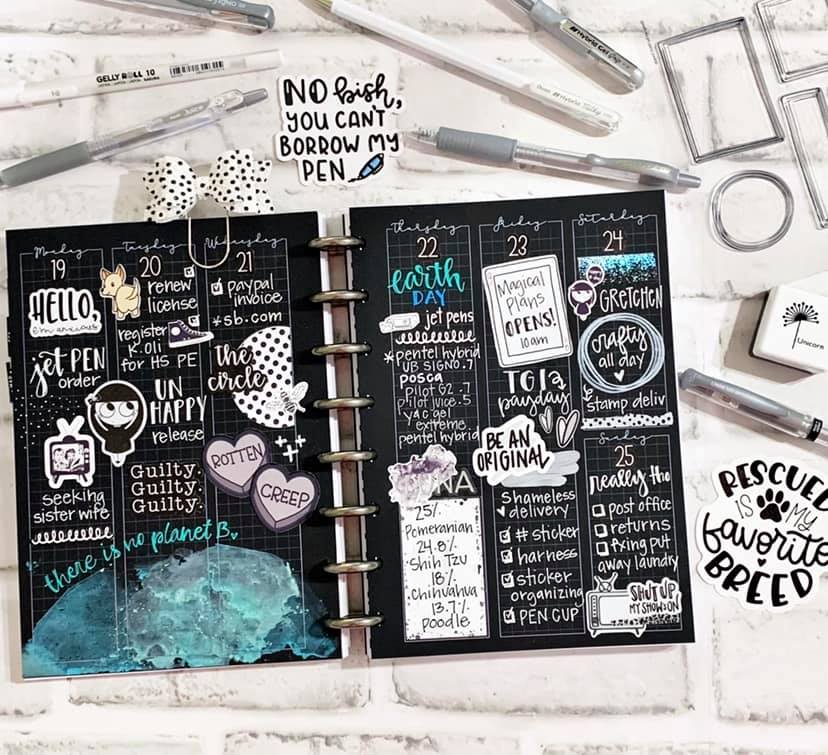 GELLY ROLL 10
NO bish,
YOU CAN'T
BORROW MY
PEN
Monday
19
HELLO,
i'm anxious
jet PEN
order
seeking
sister wife
Tuesday
20
renew
license
register
K.Oli
for HS PE
UN
HAPPY
release
Guilty.
Guilty.
Guilty.
Wednesday
21
paypal
invoice
*5b.com
The
circle
ROTTEN
CREEP
there is no planet B.
Thursday
22
earth
DAY
jet pens
*pentel hybrid
UB SIGNO .7
posca
pilot G2 .7
pilot juice .5
extreme
pentel hybrid
25%
Pomeranian
24.8%
Shih Tzu
18%
Chihuahua
13.7%
Poodle
Friday
23
Magical
Plans
OPENS!
10am
payday
BE AN
ORIGINAL
Shameless
delivery
# sticker
harness
sticker
organizing
PEN CUP
Saturday
24
GRETCHEN
crafty
all day
stamp deliv
Sunday
25
really tho
post office
returns
fixing put
away laundry
SHUT UP
MY SHOW'S ON
Unicorn
RESCUED
IS MY
favorite
BREED